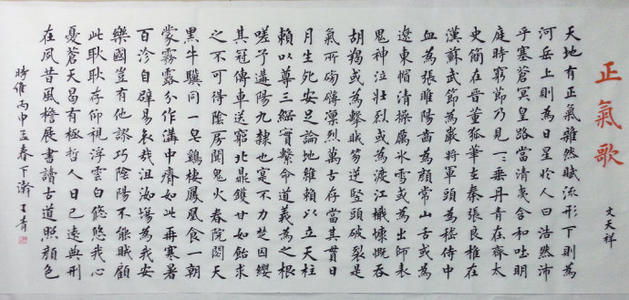 正氣歌
文天祥
天地有正氣雜然賦流形下則為
河岳上則為日星於人曰浩然沛
乎塞蒼冥皇路當清夷含和吐明
庭時窮節乃見一一垂丹青在齊太
史簡在晉董狐筆在秦張良椎在
漢蘇武節為嚴將軍頭為嵇侍中
血為張睢陽齒為顏常山舌或為
遼東帽清操厲冰雪或為出師表
鬼神泣壯烈或為渡江楫慷慨吞
胡羯或為擊賊笏逆豎頭破裂是
氣所磅礴凜烈萬古存當其貫日
月生死安足論地維賴以立天柱
賴以尊三綱實繫命道義為之根
嗟予遘陽九隸也實不力楚囚纓
其冠傳車送窮北鼎鑊甘如飴求
之不可得陰房闃鬼火春院閟天
黑牛驥同一皂雞棲鳳凰食一朝
蒙霧露分作溝中瘠如此再寒暑
百沴自辟易哀哉沮洳場為我安
樂國豈有他謬巧陰陽不能賊顧
此耿耿存仰視浮雲白悠悠我心
憂蒼天曷有極哲人日已遠典刑
在夙昔風檐展書讀古道照顏色
時維丙申孟春下澣